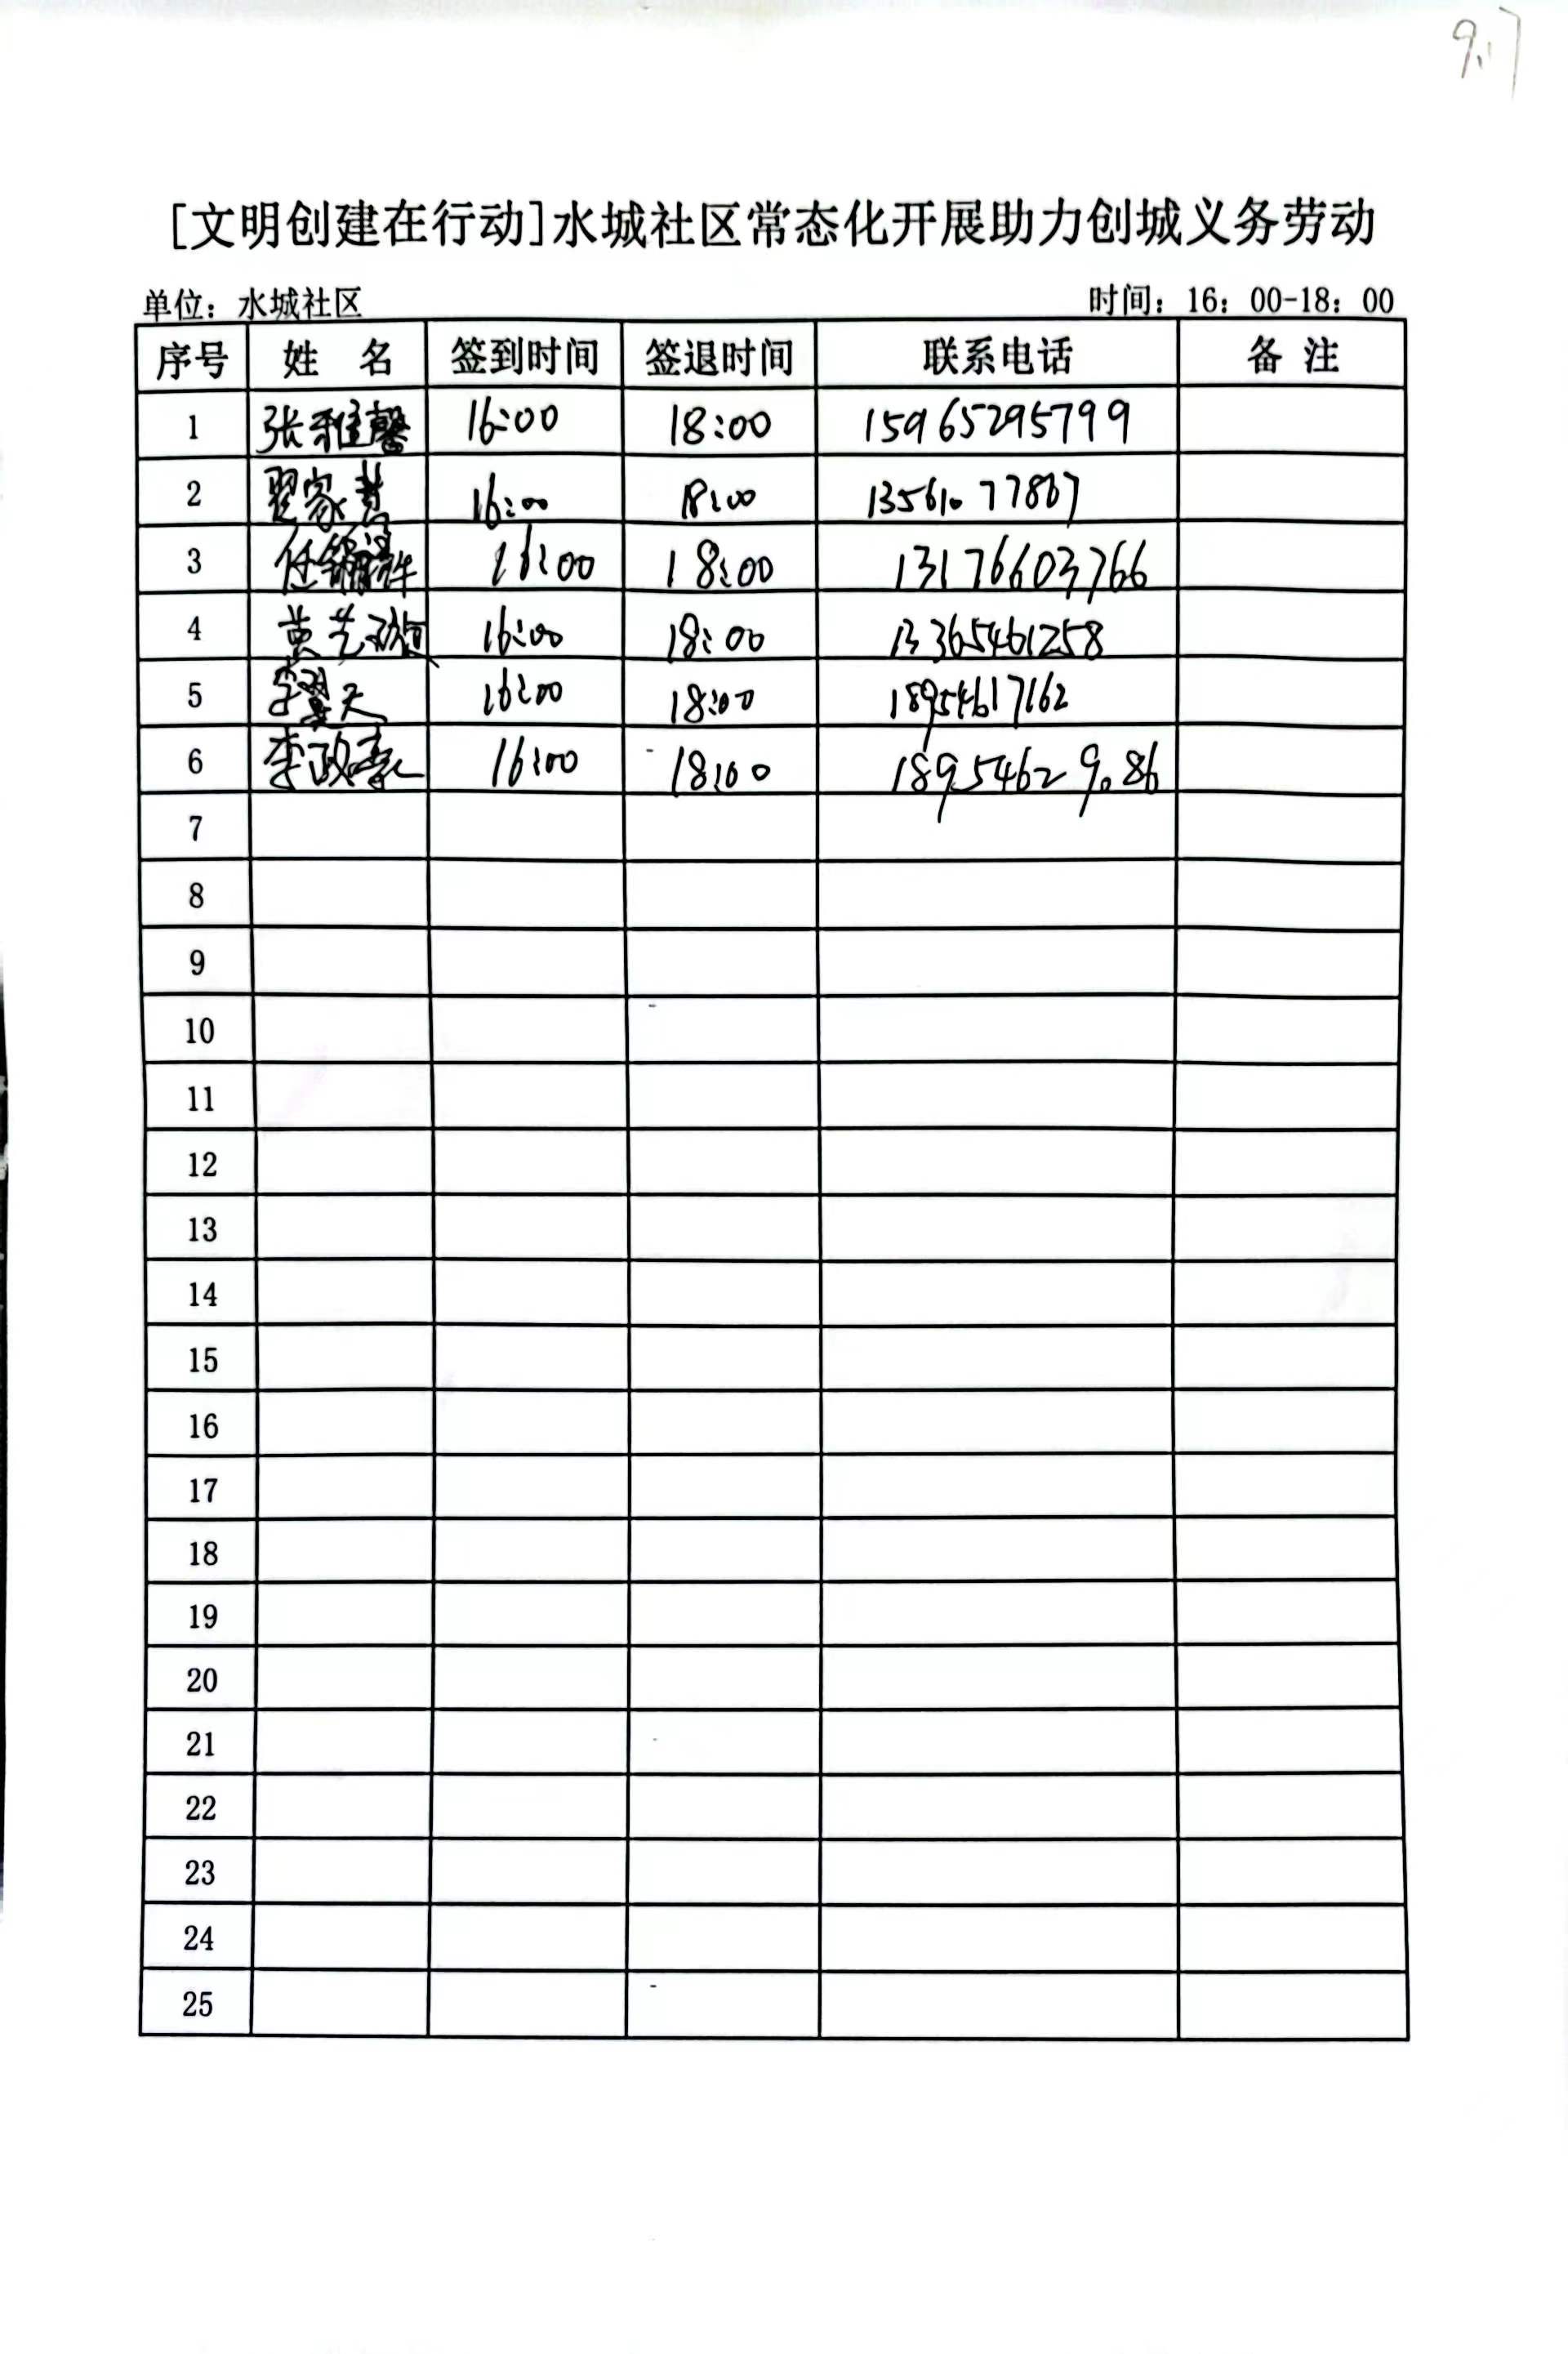 9.17
[文明创建在行动]水城社区常态化开展助力创城义务劳动
单位：水城社区 时间：16：00-18：00
序号 姓 名 签到时间 签退时间 联系电话 备 注
1 张雅馨 16:00 18:00 15965295799
2 翟家慧 16:00 18:00 13561077867
3 任 16:00 18:00 13176603766
4 黄艺璇 16:00 18:00 13365461258
5 李翼天 16:00 18:00 18954617162
6 李政 16:00 18:00 18954629086
7
8
9
10
11
12
13
14
15
16
17
18
19
20
21
22
23
24
25